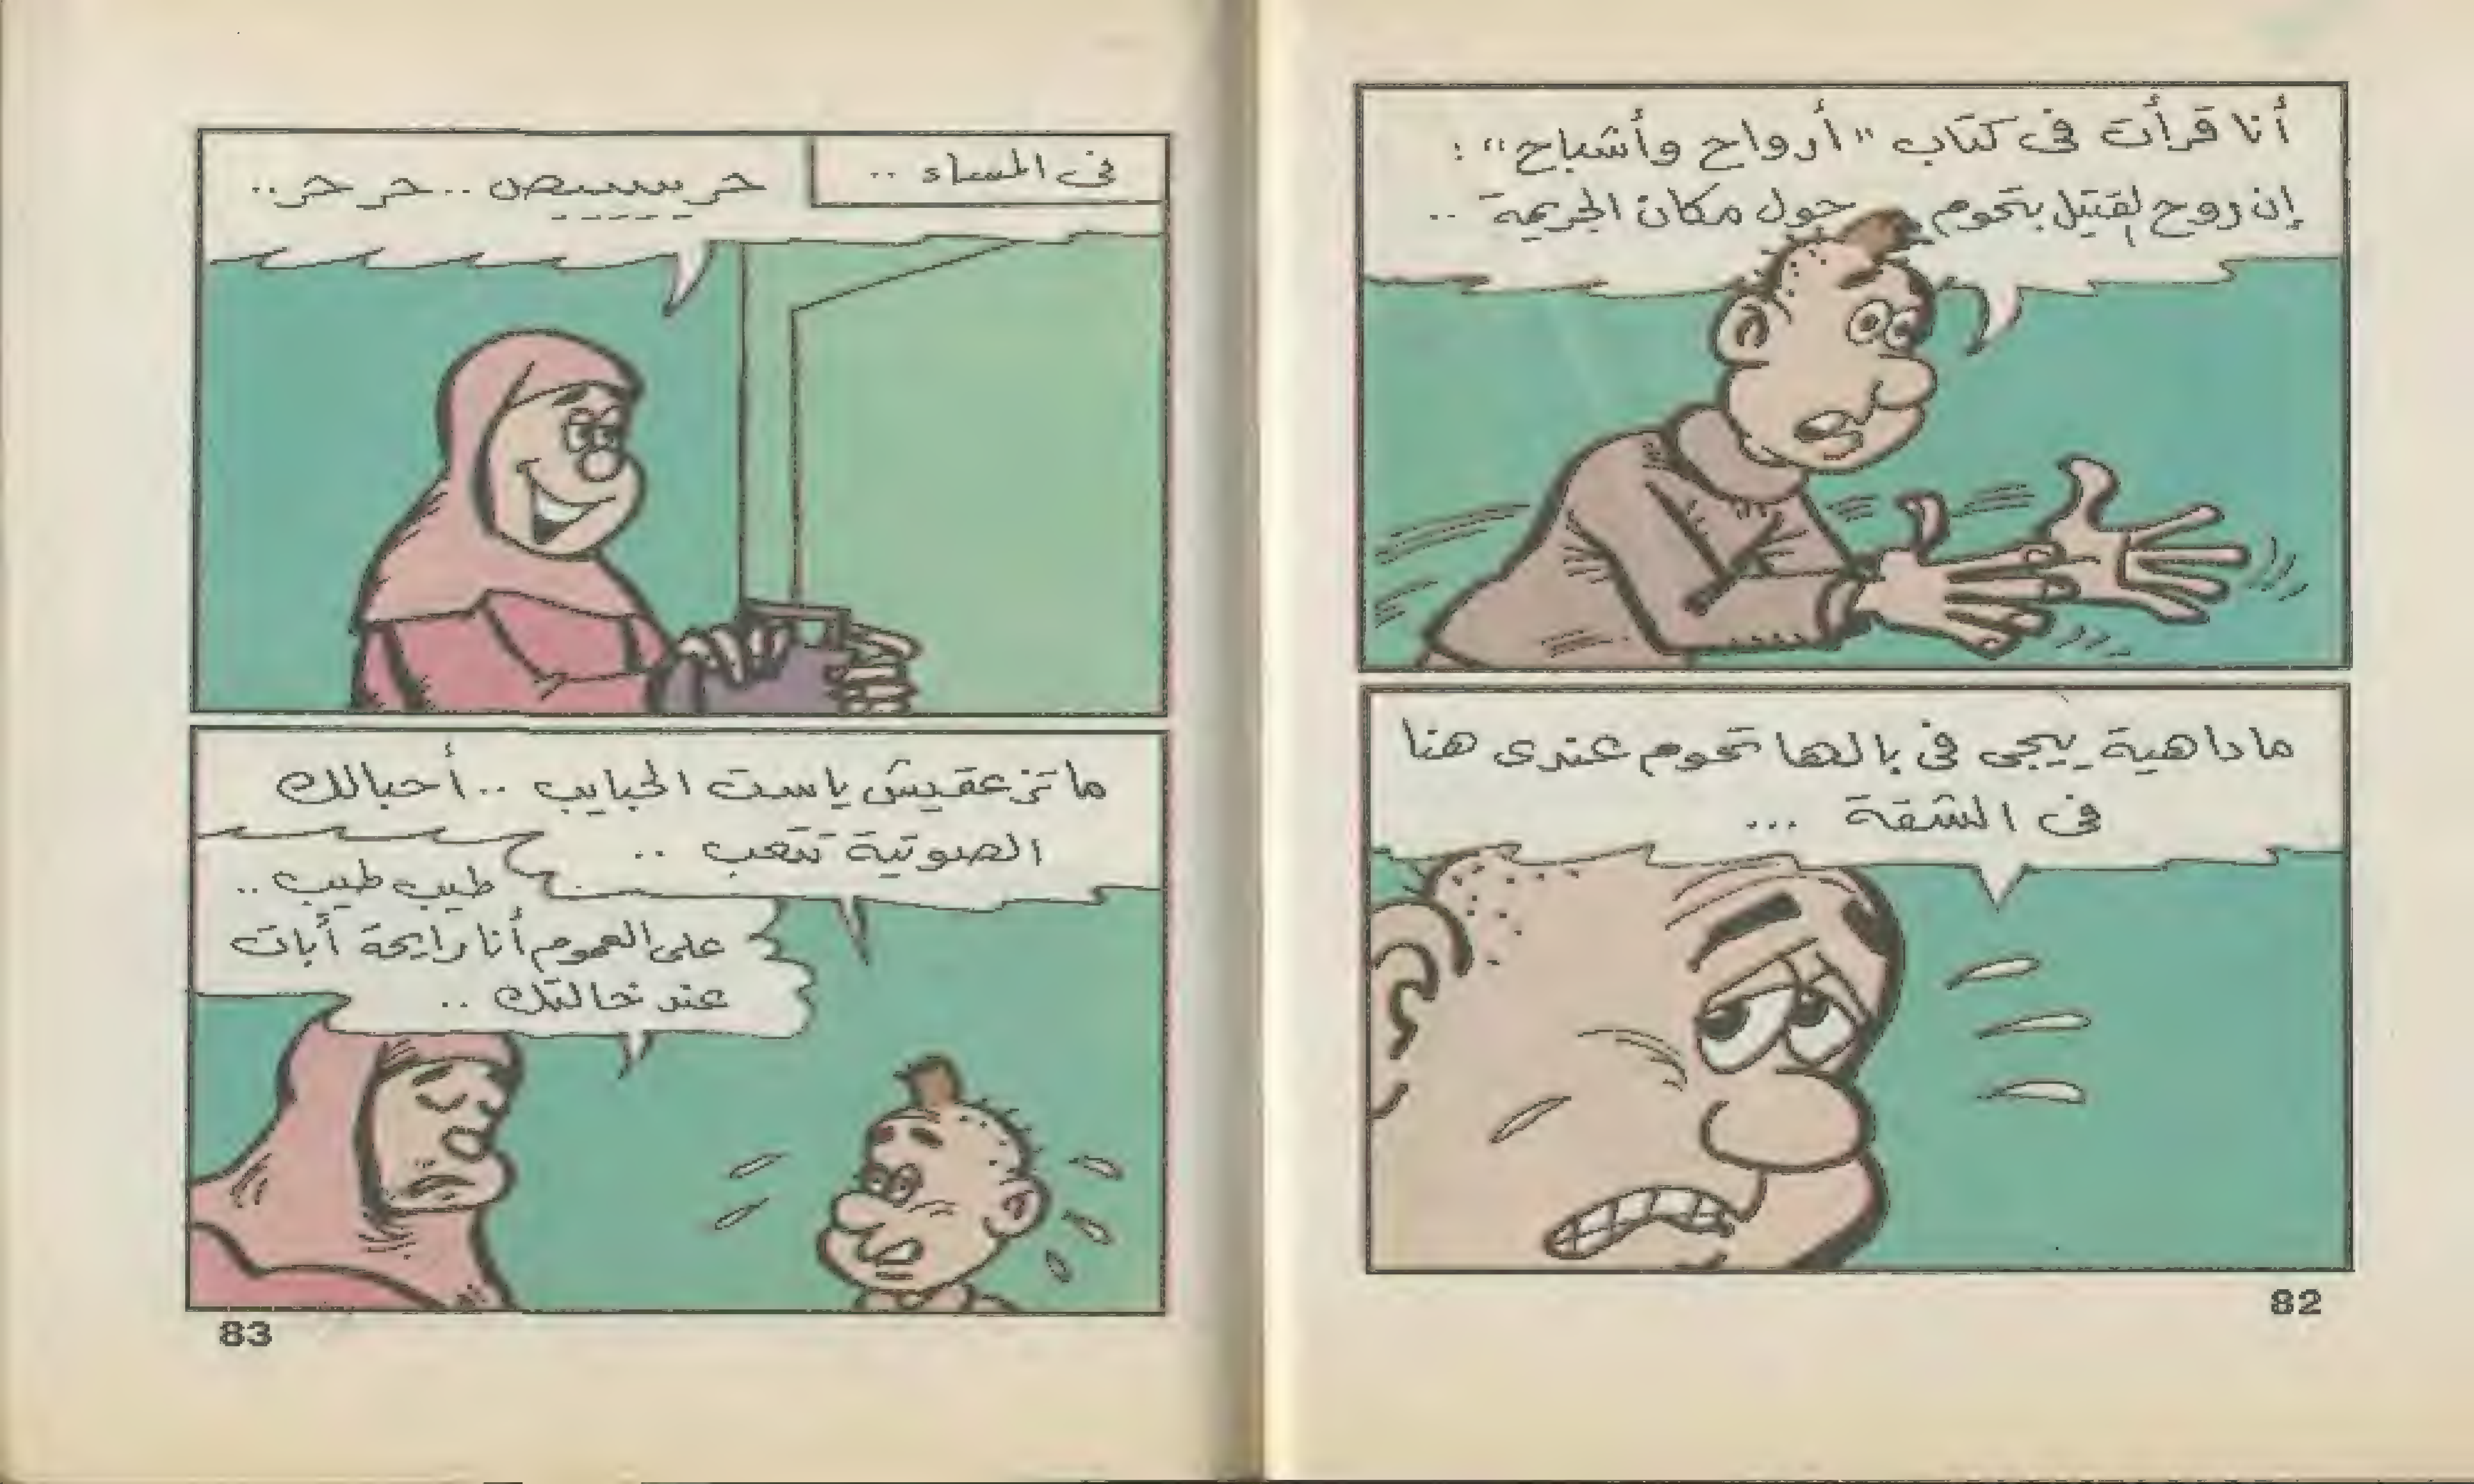 أنا قرأت فى كتاب "أرواح وأشباح" :
إن روح لقتيل بتحوم حول مكان الجريمة ..
ما داهية ييجى فى بالها تحوم عندى هنا
فى الشقة ...
82
فى المساء ..
حريييييص .. حر حر ..
ما تزعقيش ياست الحبايب .. أحبالك
الصوتية تتعب ..
طيب طيب ..
على العموم أنا رايحة أبات
عند خالتك ..
83